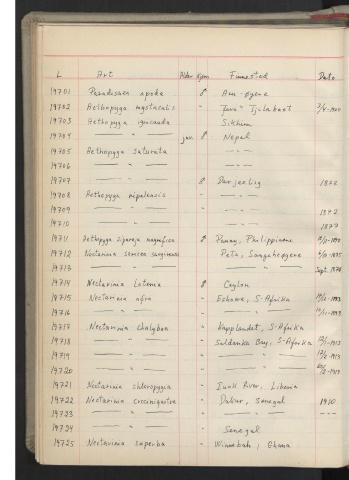 L Art Alder Kjøn Finnested Dato
19701 Paradisaea apoda ♂ Aru-øyene
19702 Aethopyga mystacalis " Java Tjulabast 3/4-1920
19703 Aethopyga ignicauda " Sikkim
19704 — " — juv. ♂ Nepal
19705 Aethopyga saturata — " —
19706 — " — — " —
19707 — " — ♂ Darjeeling 1872
19708 Aethopyga nipalensis " — " —
19709 — " — " — " — 1872
19710 — " — " — " — 1877
19711 Aethopyga siparaja magnifica ♂ Panay, Philippinene
19712 Nectarinia sericea " Peta, Sangaheøyene 1875
19713 — " — — " — Sept. 1878
19714 Nectarinia Lotenia ♂ Ceylon
19715 Nectarinia afra " Eshowe, S-Afrika
19716 — " — " — " —
19717 Nectarinia chalybea " Kapplandet, S-Afrika
19718 — " — " Saldanha Bay, S-Afrika 1913
19719 — " — " — " — 1913
19720 — " — " — " — 1913
19721 Nectarinia chloropygia " Junk River, Liberia
19722 Nectarinia coccinigastra " Dakar, Senegal 1910
19723 — " — " — " —
19724 — " — " Senegal
19725 Nectarinia superba " Winnebah, Ghana